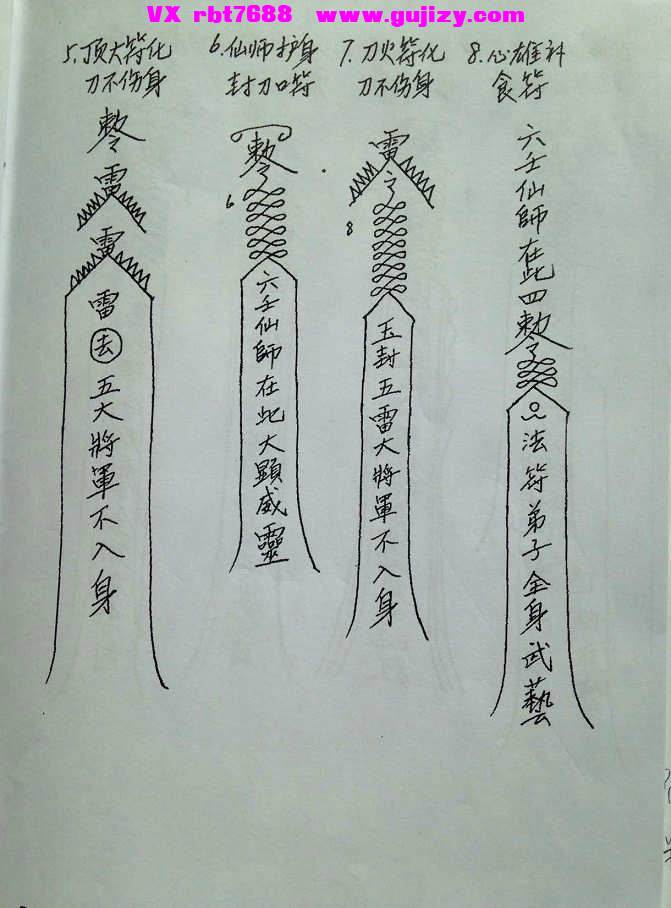 VX rbt7688 www.gujizy.com
5.顶大符化
刀不伤身
6.仙师护身
封刀口符
7.刀火符化
刀不伤身
8.心雄社
食符
雷
雷
雷
去
五大將軍不入身
敕令
6
六壬仙師在此大顯威靈
雷
令
8
玉封五雷大將軍不入身
六壬仙師在此四敕令
法符弟子全身武藝